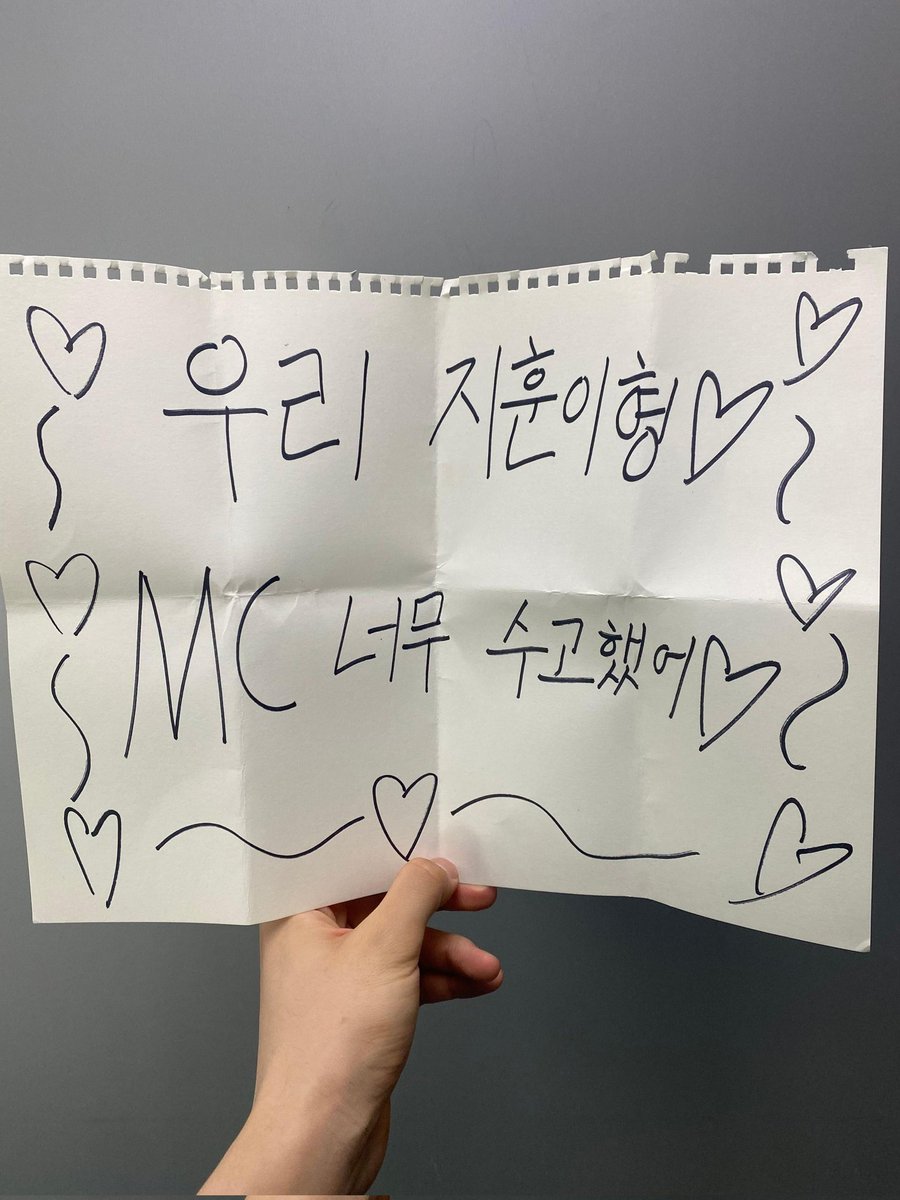 우리 지훈이형♡
MC 너무 수고했어♡